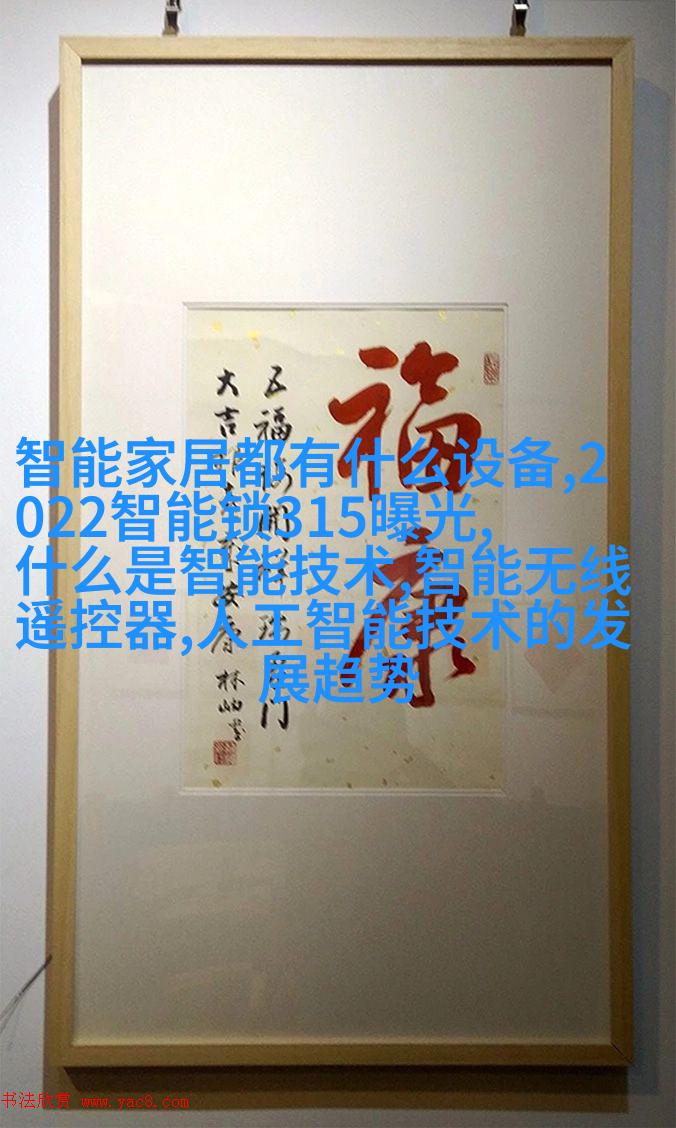 福康
五福临门祥瑞
门
大吉
安康
林岫
智能家居都有什么设备,2
022智能锁315曝光,
什么是智能技术,智能无线
遥控器,人工智能技术的发
展趋势
书法欣赏 www.yac8.com